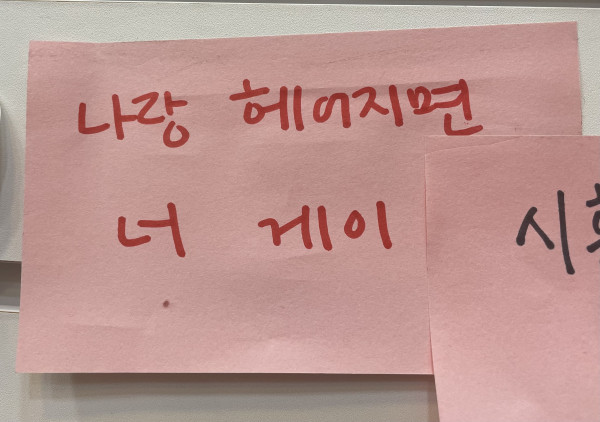 나랑 헤어지면
너 게이
시